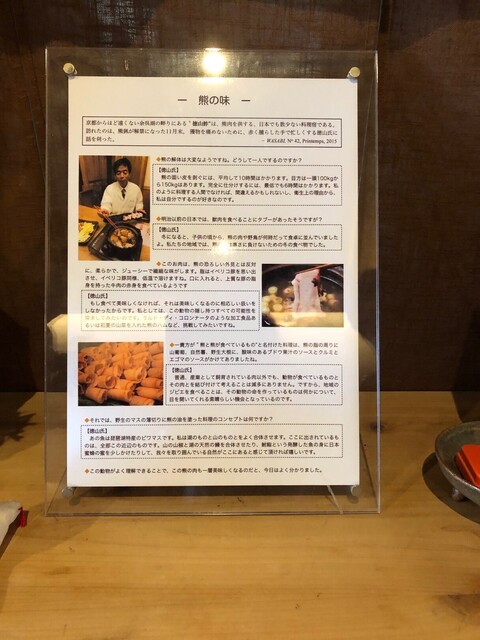 ― 熊の味 ―
京都からほど遠くない余呉湖の畔りにある"徳山鮓"は、熊肉を供する、日本でも数少ない料理宿である。
訪れたのは、熊猟が解禁になった11月末。獲物を痛めないために、赤く腫らした手で忙しくする徳山氏に
話を伺った。
– WASABI N° 42, Printemps, 2015
◆熊の解体は大変なようですね。どうして一人でするのですか?
【徳山氏】
熊の固い皮を剥ぐには、平均して10時間はかかります。目方は一頭100kgか
ら150kgはあります。完全に仕分けするには、最低でも6時間はかかります。私
のように料理する人間でなければ、間違えるかもしれないし、衛生上の理由から、
私は自分でするのが好きなのです。
◆明治以前の日本では、獣肉を食べることにタブーがあったそうですが?
【徳山氏】
冬になると、子供の頃から、熊の肉や野鳥が何時だって食卓に並んでいました
よ。私たちの地域では、
負けないための冬の食べ物でした。
◆このお肉は、熊の恐ろしい外見とは反対
に、柔らかで、ジューシーで繊細な味がします。脂はイベリコ豚を思い出
させ、イベリコ豚同様、低温で溶けますね。口に入れると、上質な豚の脂
身を持った牛肉の赤身を食べているようです
【徳山氏】
もし食べて美味しくなければ、それは美味しくなるのに相応しい扱いを
しなかったからです。私としては、この動物の隠し持つすべての可能性を
探求してみたいのです。
コロンナータのような加工食品あ
るいは初夏の山菜を入れた熊のハムなど、挑戦してみたいですね。
◆一貴方が"熊と熊が食べているもの"と名付けた料理は、熊の脂の周りに
山葡萄、自然薯、野生大根に、酸味のあるブドウ果汁のソースとクルミと
エゴマのソースがかけてありましたね。
【徳山氏】
普通、産業として飼育されている肉以外でも、動物が食べているものと
その肉とを結び付けて考えることは滅多にありません。ですから、地域の
ジビエを食べることは、その動物の命を作っているものは何かについて、
目を開いてくれる素晴らしい機会となっているのです。
◆それでは、野生のマスの薄切りに熊の油を塗った料理のコンセプトは何ですか?
【徳山氏】
あの魚は琵琶湖特産のビワマスです。私は湖のものと山のものとをよく合体させます。ここに出されているもの
は、全部この近辺のものです。山の山椒と湖の天然の鰻を合体させたり、鮒鮨という発酵した魚の身に日本
蜜蜂の蜜を少しかけたりして、我々を取り囲んでいる自然がここにあると感じて頂ければ嬉しいです。
◆この動物がよく理解できることで、この熊の肉も一層美味しくなるのだと、今日はよく分かりました。